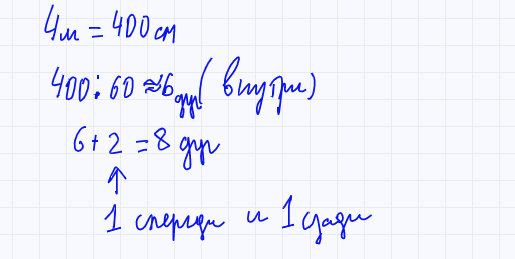 4м = 400 см
400 : 60 ≈ 6 дуг (внутри)
6 + 2 = 8 дуг
↑
1 спереди и 1 сзади